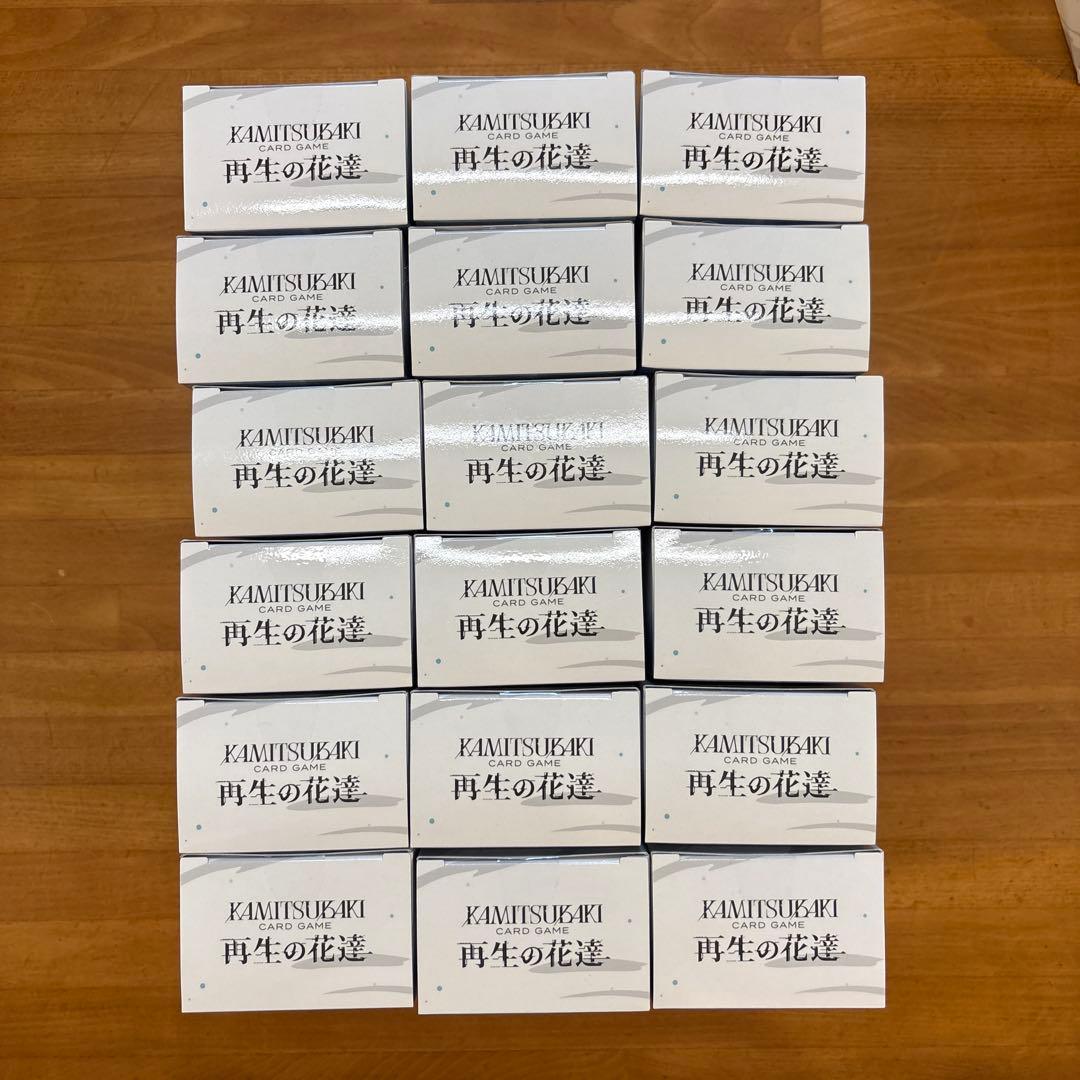 KAMITSUBAKI
CARD GAME
再生の花達
KAMITSUBAKI
CARD GAME
再生の花達
KAMITSUBAKI
CARD GAME
再生の花達
KAMITSUBAKI
CARD GAME
再生の花達
KAMITSUBAKI
CARD GAME
再生の花達
KAMITSUBAKI
CARD GAME
再生の花達
KAMITSUBAKI
CARD GAME
再生の花達
KAMITSUBAKI
CARD GAME
再生の花達
KAMITSUBAKI
CARD GAME
再生の花達
KAMITSUBAKI
CARD GAME
再生の花達
KAMITSUBAKI
CARD GAME
再生の花達
KAMITSUBAKI
CARD GAME
再生の花達
KAMITSUBAKI
CARD GAME
再生の花達
KAMITSUBAKI
CARD GAME
再生の花達
KAMITSUBAKI
CARD GAME
再生の花達
KAMITSUBAKI
CARD GAME
再生の花達
KAMITSUBAKI
CARD GAME
再生の花達
KAMITSUBAKI
CARD GAME
再生の花達